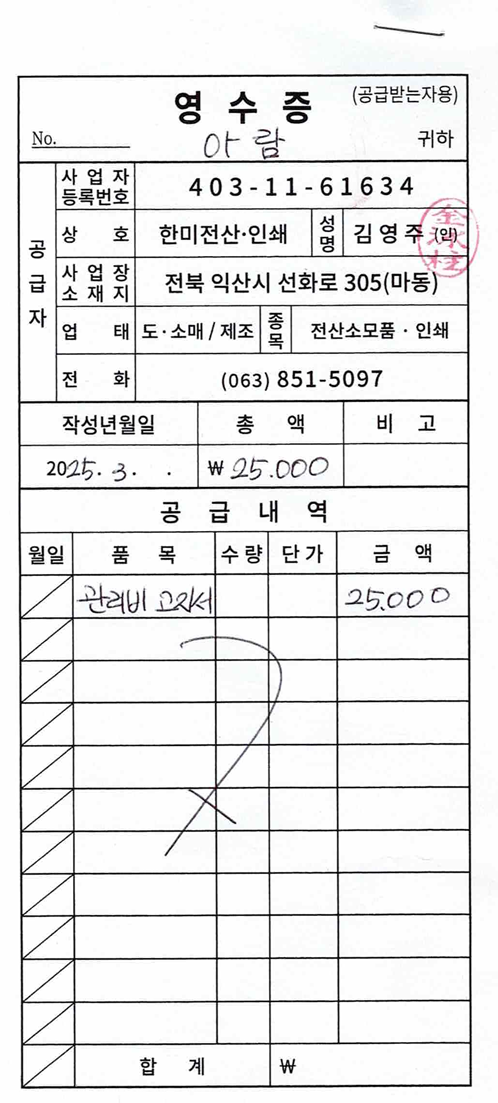 영 수 증 (공급받는자용)
No. 아 람 귀하
공급자
사 업 자 등록번호 403-11-61634
상 호 한미전산·인쇄 성명 김영주 (인)
사 업 장 소 재 지 전북 익산시 선화로 305(마동)
업 태 도·소매 / 제조 종목 전산소모품 · 인쇄
전 화 (063) 851-5097
작성년월일 총 액 비 고
2025. 3. . ₩ 25.000
공 급 내 역
월일 품 목 수량 단가 금 액
관리비 고지서 25.000
합 계 ₩